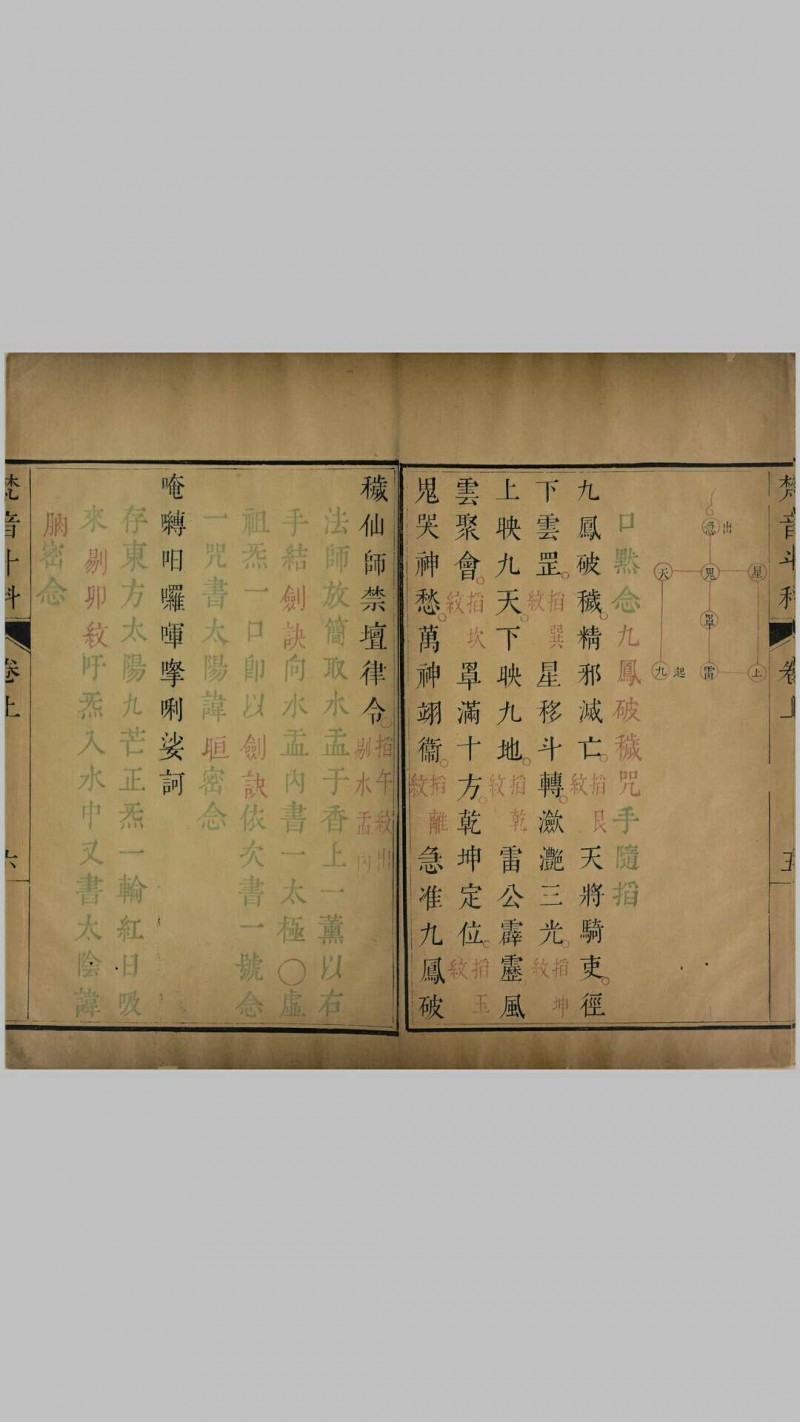 梵音斗科
卷上
五
出
急
天 鬼 星
罩
九 起 雷 上
口默念九鳳破穢咒手隨掐
九鳳破穢。精邪滅亡。掐艮紋 天將騎吏。徑
下雲罡。掐巽紋 星移斗轉。瀲灩三光。掐坤紋
上映九天。下映九地。掐乾紋 雷公霹靂。風
雲聚會。掐坎紋 罩滿十方。乾坤定位。掐玉紋
鬼哭神愁。萬神翊衞。掐離紋 急准九鳳破
穢仙師禁壇律令。掐午紋出剔水盂內
法師放簡取水盂于香上一薰以右
手結劍訣向水盂內書一太極〇虛
祖炁一口卽以劍訣依次書一號念
一咒書太陽諱㫜密念
唵囀呬囉㖶㧒唎娑訶
存東方太陽九芒正炁一輪紅日吸
來剔卯紋吁炁入水中又書太陰諱
朒密念
梵音斗科
卷上
六